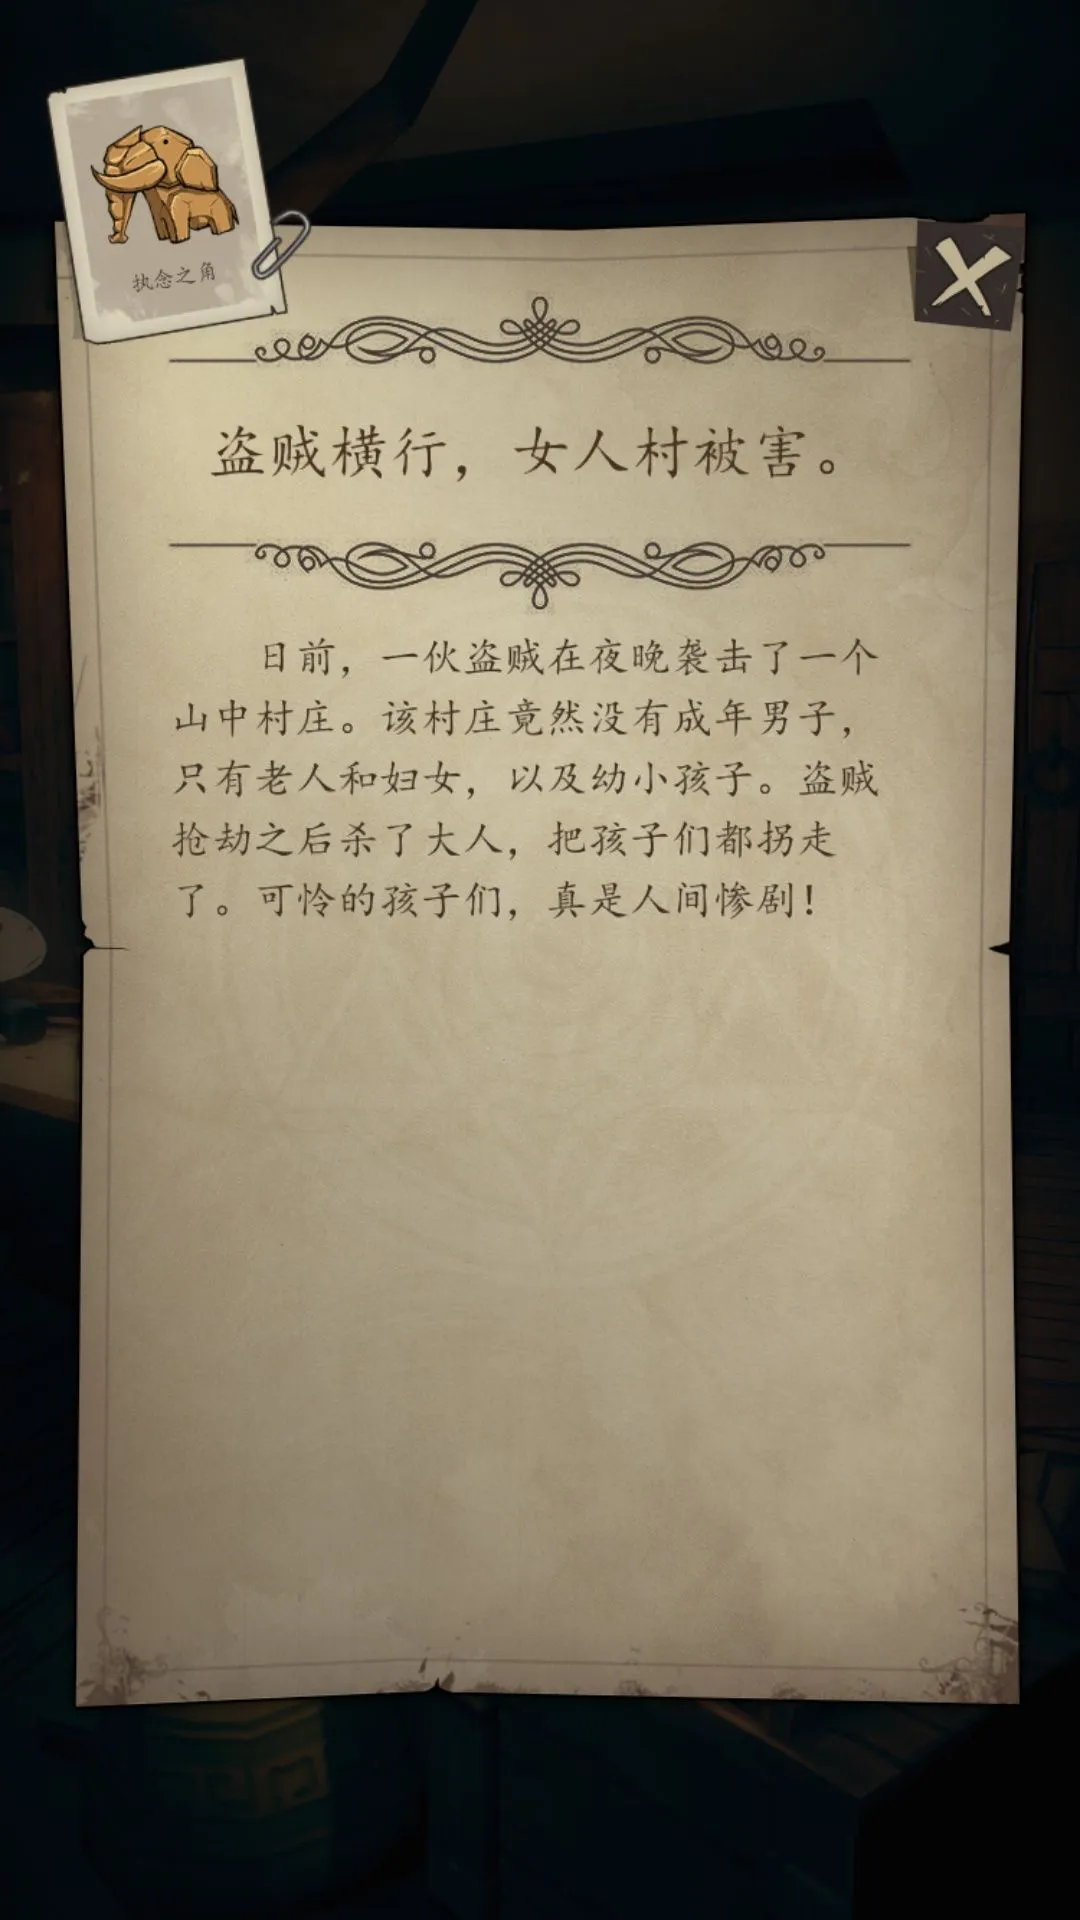 执念之角
盗贼横行，女人村被害。
日前，一伙盗贼在夜晚袭击了一个
山中村庄。该村庄竟然没有成年男子，
只有老人和妇女，以及幼小孩子。盗贼
抢劫之后杀了大人，把孩子们都拐走
了。可怜的孩子们，真是人间惨剧！